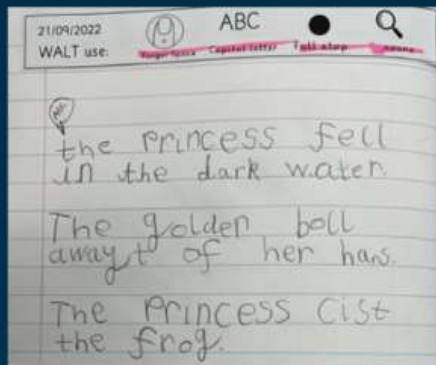 21/09/2022
WALT use:
ABC
Finger Space Capital letter Full stop nouns
the princess fell
in the dark water.
The golden boll
away,t of her hans.
The Princess Cist
the frog.